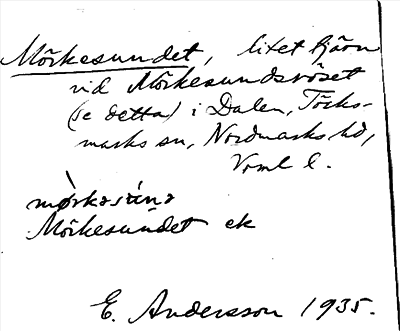 Mörkesundet, litet tjärn
vid Mörkesundsröset
(se detta) i Dalen, Töcks-
marks sn, Nordmarks hd,
Vrml l.
mørkəsúnə
Mörkesundet ek
E. Andersson 1935.